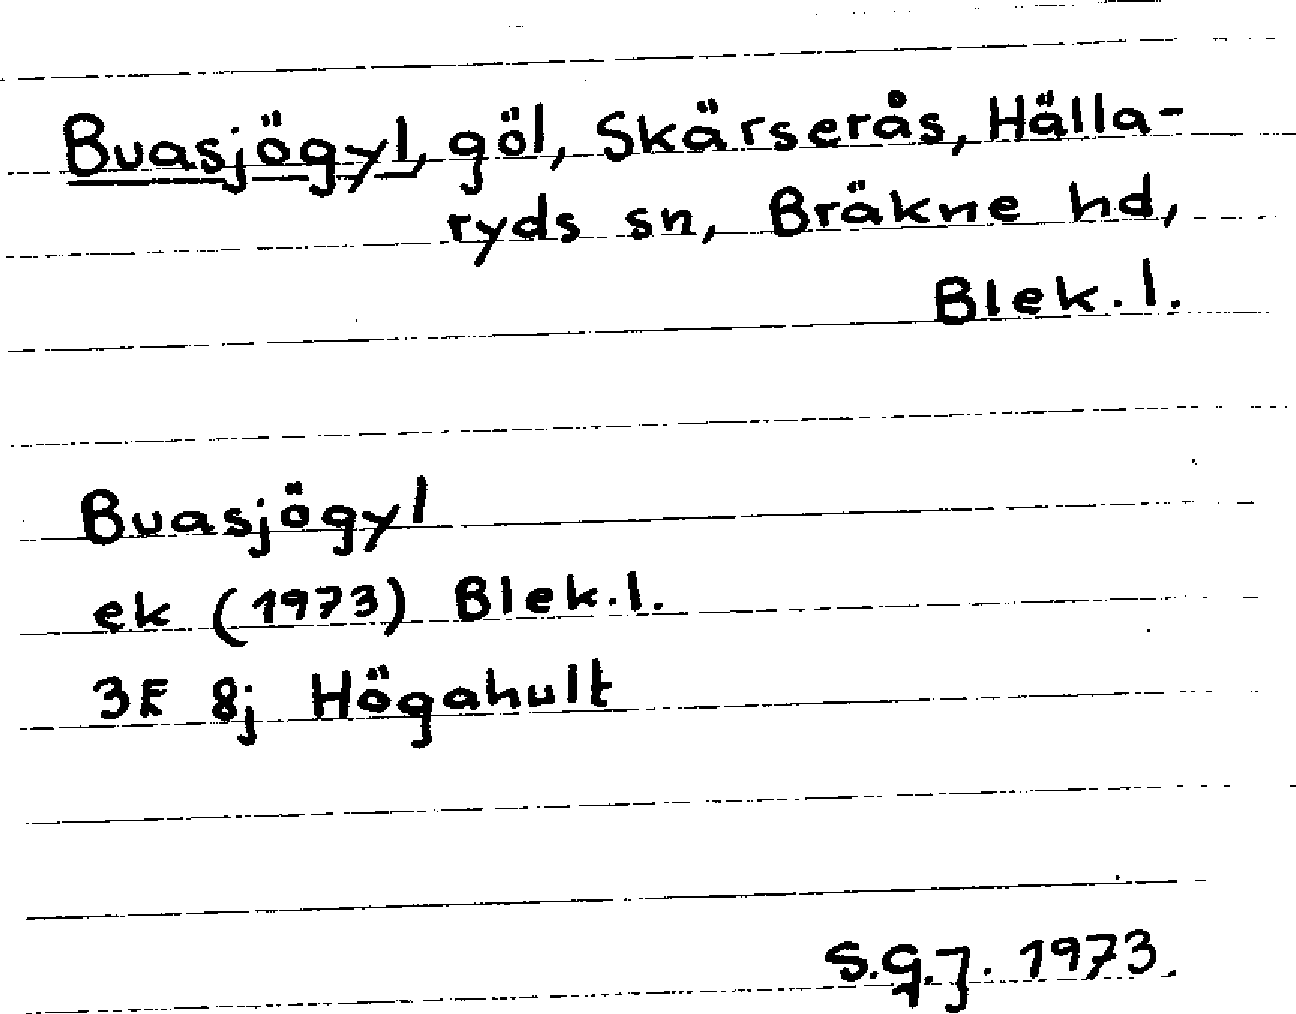 Buasjögyl, göl, Skärserås, Hälla-
ryds sn, Bräkne hd,
Blek. l.
Buasjögyl
ek (1973) Blek. l.
3F 8j Högahult
S.G.J. 1973.